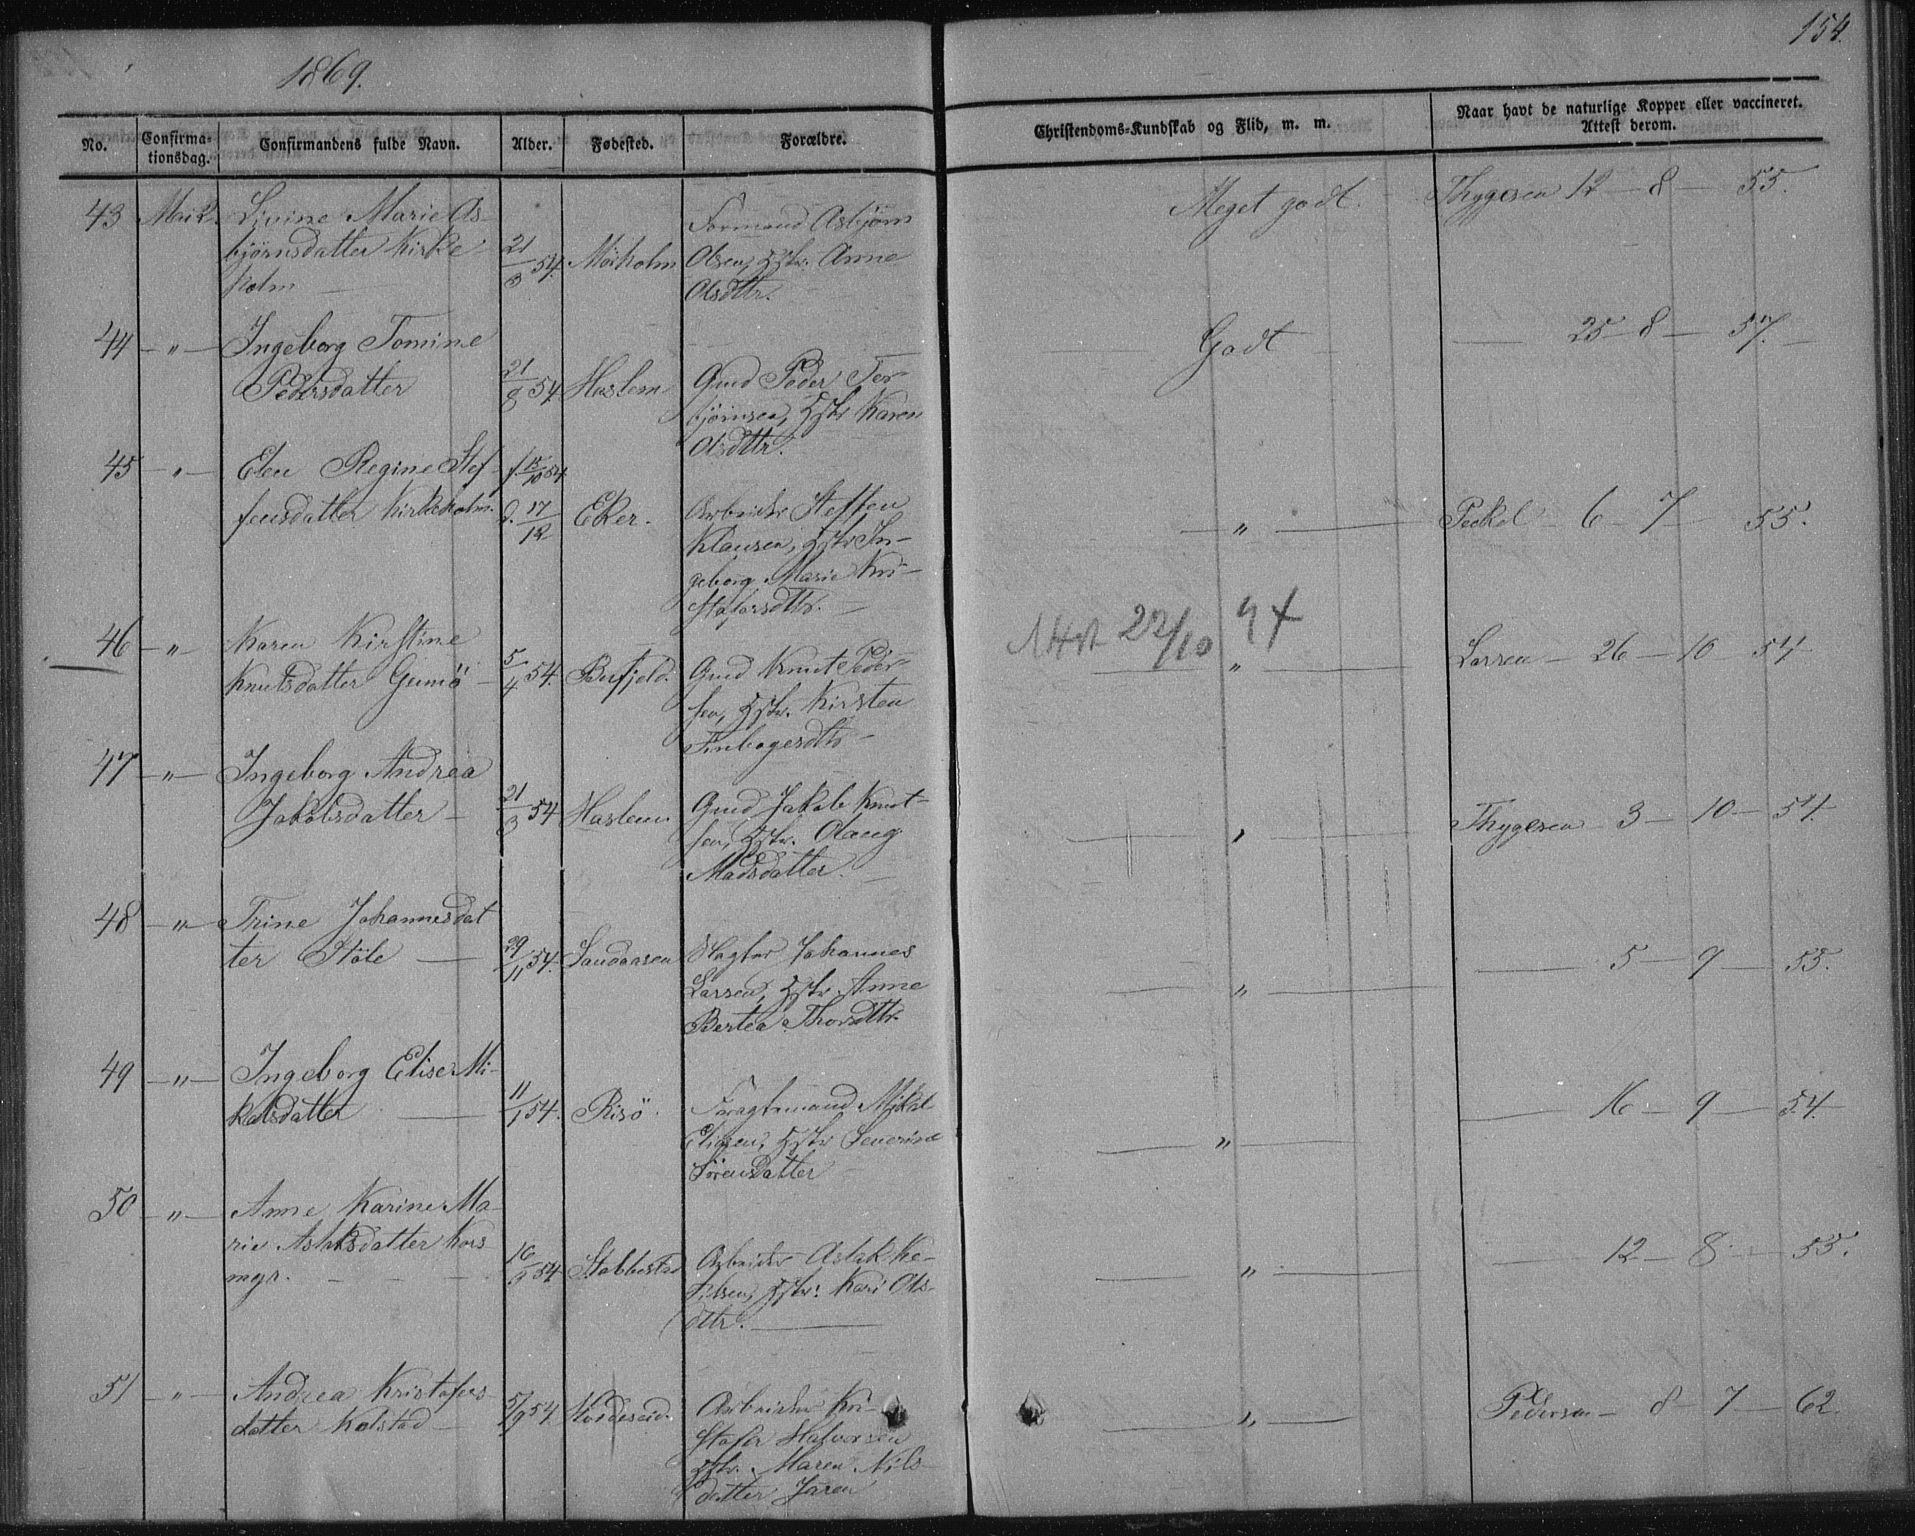 1869.
154.
No.
Confirma-
tionsdag.
Confirmandens fulde Navn.
Alder.
Fødested.
Forældre.
Christendoms-Kundskab og Flid, m. m.
Naar havt de naturlige Kopper eller vaccineret.
Attest derom.
43 Mai 2. Livine Marie As-
bjørnsdatter Kirke-
holm
21/3 54. Moiholm
Formand Asbjørn
Olsen, Hstr. Anne
Olsdttr.
Meget godt. Thygesen 12 - 8 - 55.
44 - " - Ingeborg Tomine
Pedersdatter
21/8 54 Haslem
Gmd Peder Ter-
bjørnsen, Hstr Karen
Olsdttr.
Godt - 25 - 8 - 57.
45 - " - Elen Regine Stef-
fensdatter Kirkeholm.
f. 15/10 54
d. 17/12 Eker.
Arbeider Steffen
Klausen, Hstr In-
geborg Marie Kri-
stofersdttr.
" Peckel - 6 - 7 - 55.
46 - " - Karen Kirstine
Knutsdatter Gumö
5/4 54. Bufjeld.
Gmd Knut Peder-
sen, Hstr. Kirsten
Finbogesdtr
Attst 22/10 94
" Larsen - 26 - 10 - 54
47 - " - Ingeborg Andrea
Jakobsdatter
21/3 54 Haslem
Gmd Jakob Knut-
sen, Hstr. Olaug
Madsdatter.
" Thygesen - 3 - 10 - 54.
48 - " Trine Johannesdat
ter Støle
29/11 54. Sandaasen
Slagter Johannes
Larsen, Hstr Anne
Bertea Thorsdttr.
" - 5 - 9 - 55.
49 - " - Ingeborg Elise Mi-
kalsdatter
11/1 54. Risö.
Fragtemand Mikal
Eliasen, Hstr Severine
Sörensdatter
" - 16 - 9 - 54.
50 - " - Anne Karine Ma-
rie Aslaksdatter Kors-
mgr.
16/9 54 Stabbestad
Arbeider Aslak Ke-
tilsen, Hstr. Kari Ols-
dttr.
" - 12 - 8 - 55.
51 - " - Andrea Kristofers-
datter Kolstad
5/9 54.
Arbeider Kri-
stofer Halvorsen
Hstr. Maren Nils-
datter
" Pedersen - 8 - 7 - 62.